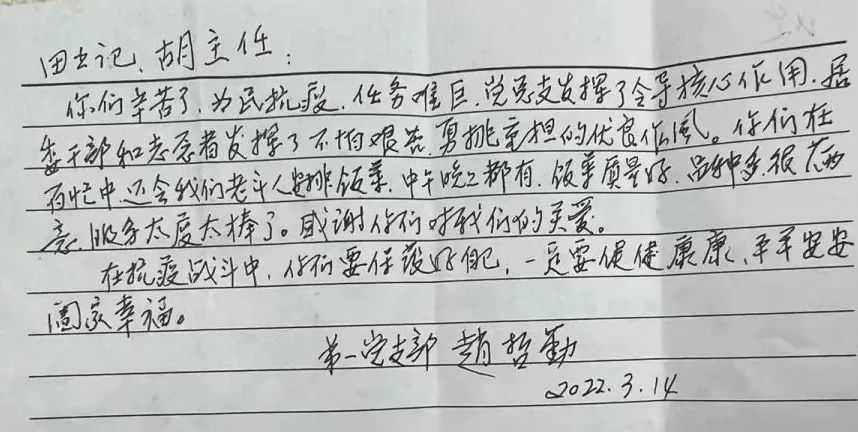 田书记、胡主任:
你们辛苦了,为民抗疫,任务难巨,党总支发挥了领导核心作用,居
委干部和志愿者发挥了不怕艰苦,勇挑重担的优良作风。你们在
百忙中还会我们老年人安排饭菜,中午晚上都有,饭菜质量好,品种多,很大满
意,服务太度太棒了。感谢你们对我们的关爱。
在抗疫战斗中,你们要保护好自己,一定要健健康康、平平安安
阖家幸福。
第一党支部 赵哲勤
2022.3.14